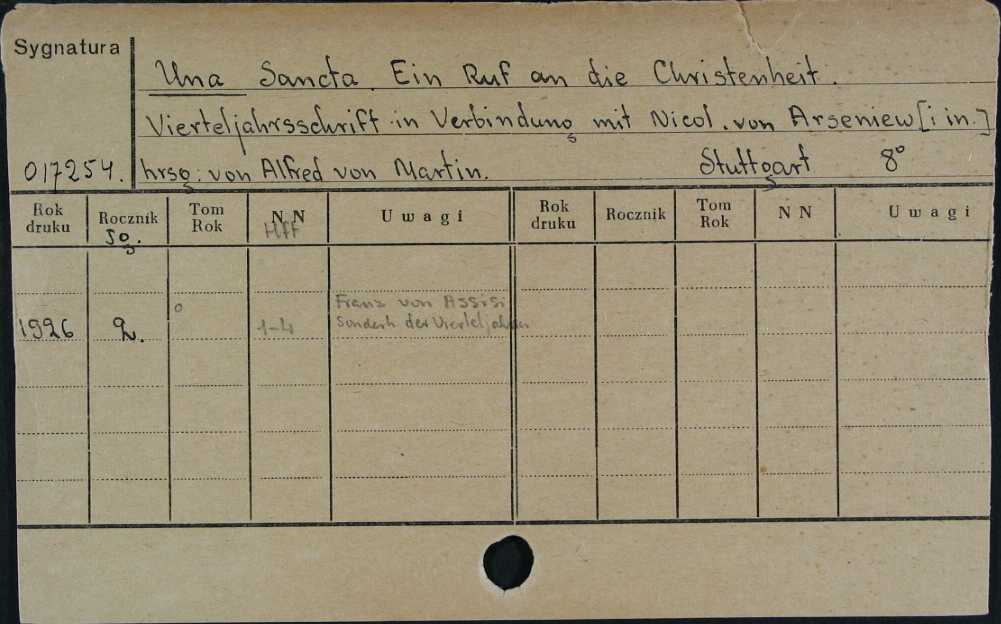 Sygnatura
Una Sancta. Ein Ruf an die Christenheit.
Vierteljahrsschrift in Verbindung mit Nicol. von Arseniew [i in.]
017254. hrsg. von Alfred von Martin. Stuttgart 8°
Rok druku Rocznik Tom Rok NN Uwagi Rok druku Rocznik Tom Rok NN Uwagi
Jg. Hff
Franz von Assisi
1926 2. 1-4 Sonderh der